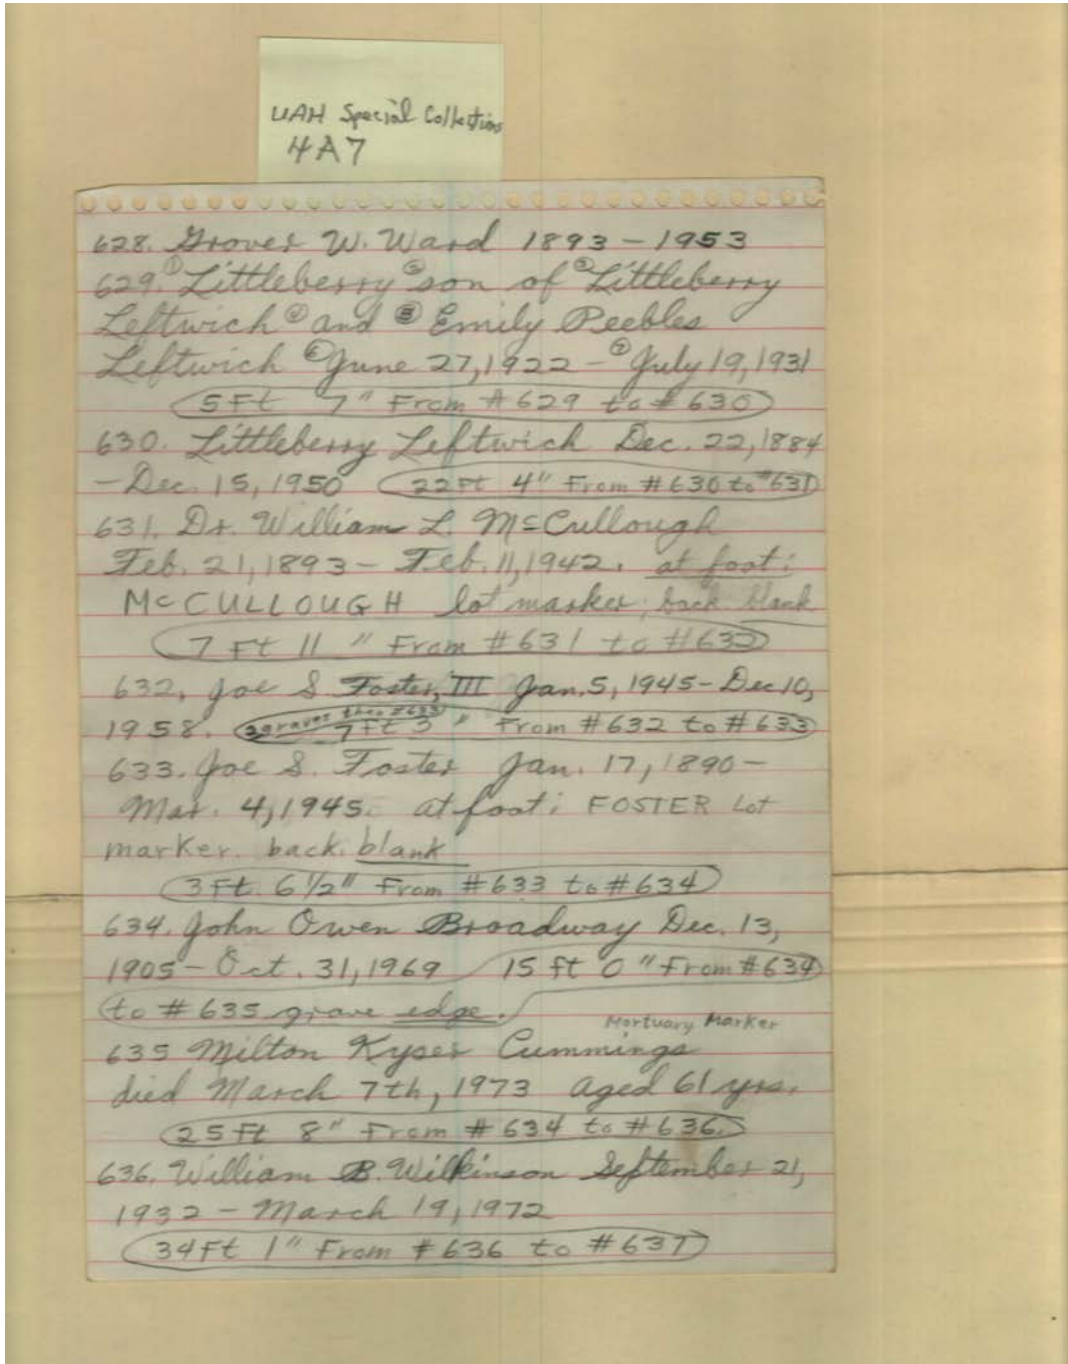 UAH Special Collections
4A7
628. Grover W. Ward 1893 - 1953
629. ① Littleberry ② son of ③ Littleberry
Leftwich ④ and ⑤ Emily Peebles
Leftwich ⑥ June 27, 1922 - ⑦ July 19, 1931
5 Ft 7" From #629 to #630
630. Littleberry Leftwich Dec. 22, 1884
- Dec. 15, 1950 22 Ft 4" From #630 to #631
631. Dr. William L. McCullough
Feb. 21, 1893 - Feb. 11, 1942. at foot:
McCULLOUGH lot marker, back blank
7 Ft 11" From #631 to #632
632. Joe S Foster, III Jan. 5, 1945 - Dec 10,
1958. 2 graves then #633 7 Ft 3" From #632 to #633
633. Joe S. Foster Jan. 17, 1890 -
Mar. 4, 1945. at foot: FOSTER Lot
marker. back. blank
3 Ft. 6 1/2" From #633 to #634
634. John Owen Broadway Dec. 13,
1905 - Oct. 31, 1969 15 ft 0" From #634
to #635 grave edge.
Mortuary Marker
635 Milton Kyser Cummings
died March 7th, 1973 aged 61 yrs.
25 Ft 8" From #634 to #636.
636. William B. Wilkinson September 21,
1932 - March 19, 1972
34 Ft 1" From #636 to #637